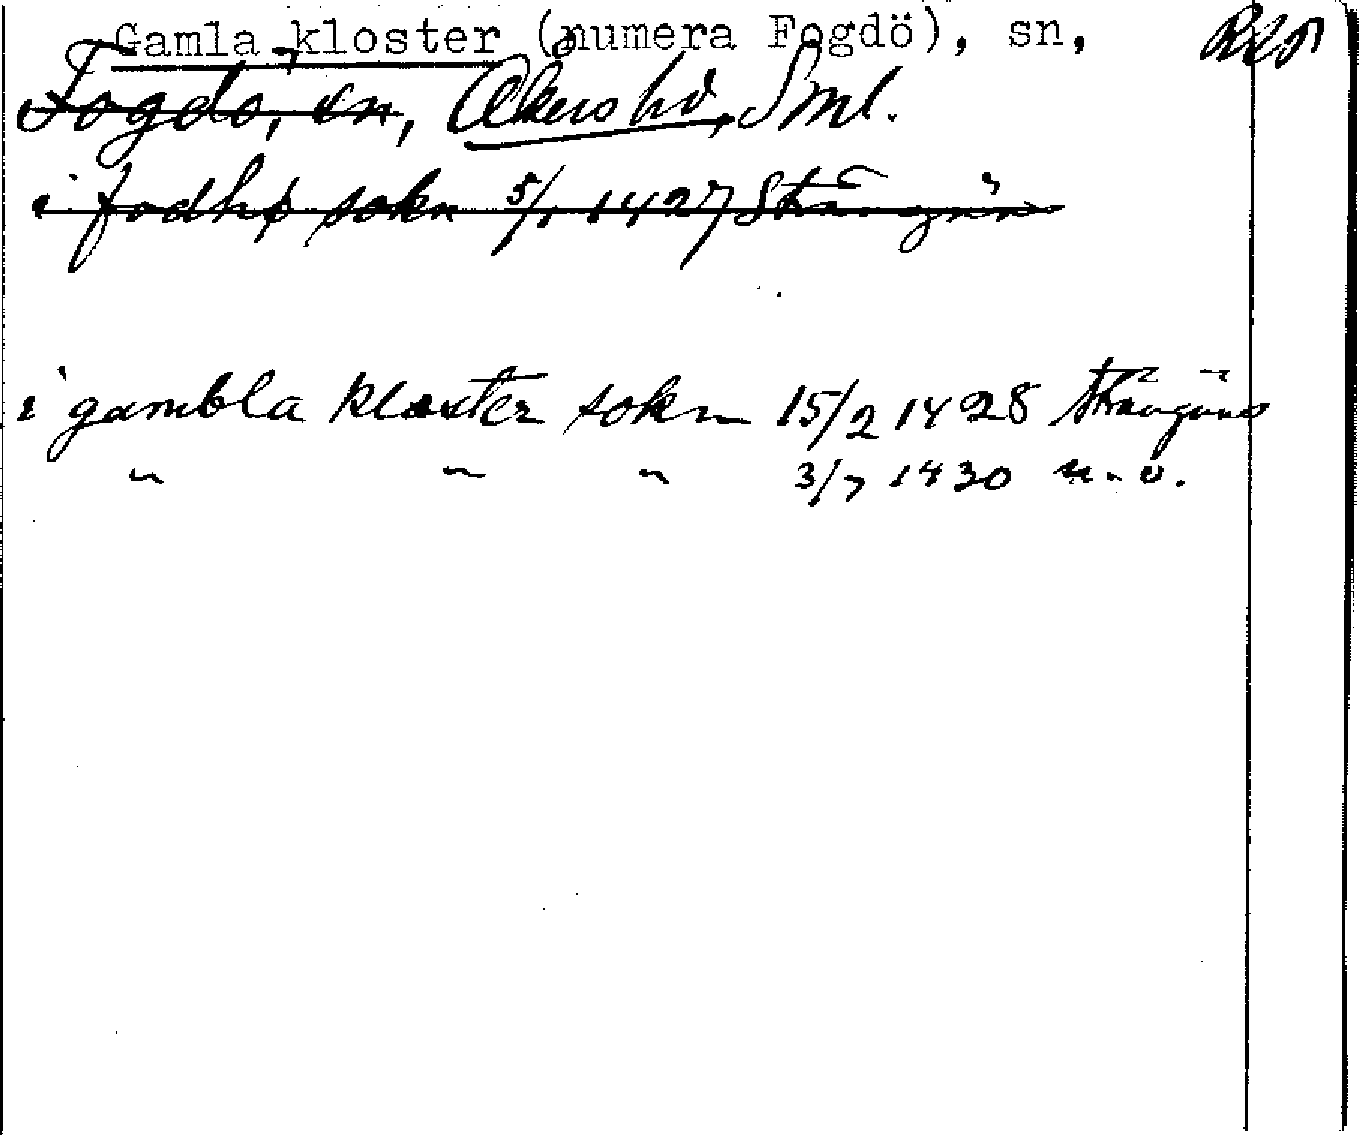 Gamla kloster (numera Fogdö), sn,
Fogdö, sn, Åkers hd, Sml.
i fodhø sokn 5/1 1427 Strängnäs
i gambla kloster sokn 15/2 1428 Strängnäs
" " " 3/7 1430 n. v.